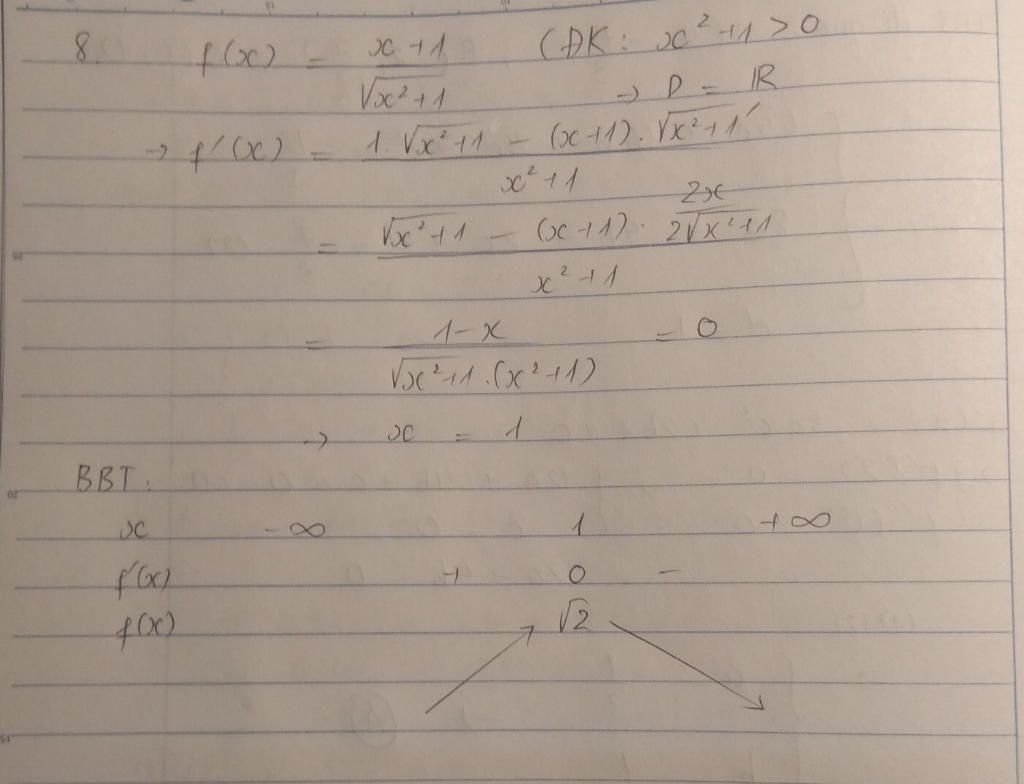 8. f(x) = (x+1)/√(x²+1) (ĐK: x²+1 > 0
→ D = ℝ
→ f'(x) = (1.√(x²+1) - (x+1).√(x²+1)')/(x²+1)
= (√(x²+1) - (x+1). 2x/(2√(x²+1)))/(x²+1)
= (1-x)/(√(x²+1).(x²+1)) = 0
→ x = 1
BBT:
x -∞ 1 +∞
f'(x) + 0 -
f(x) ↗ √2 ↘